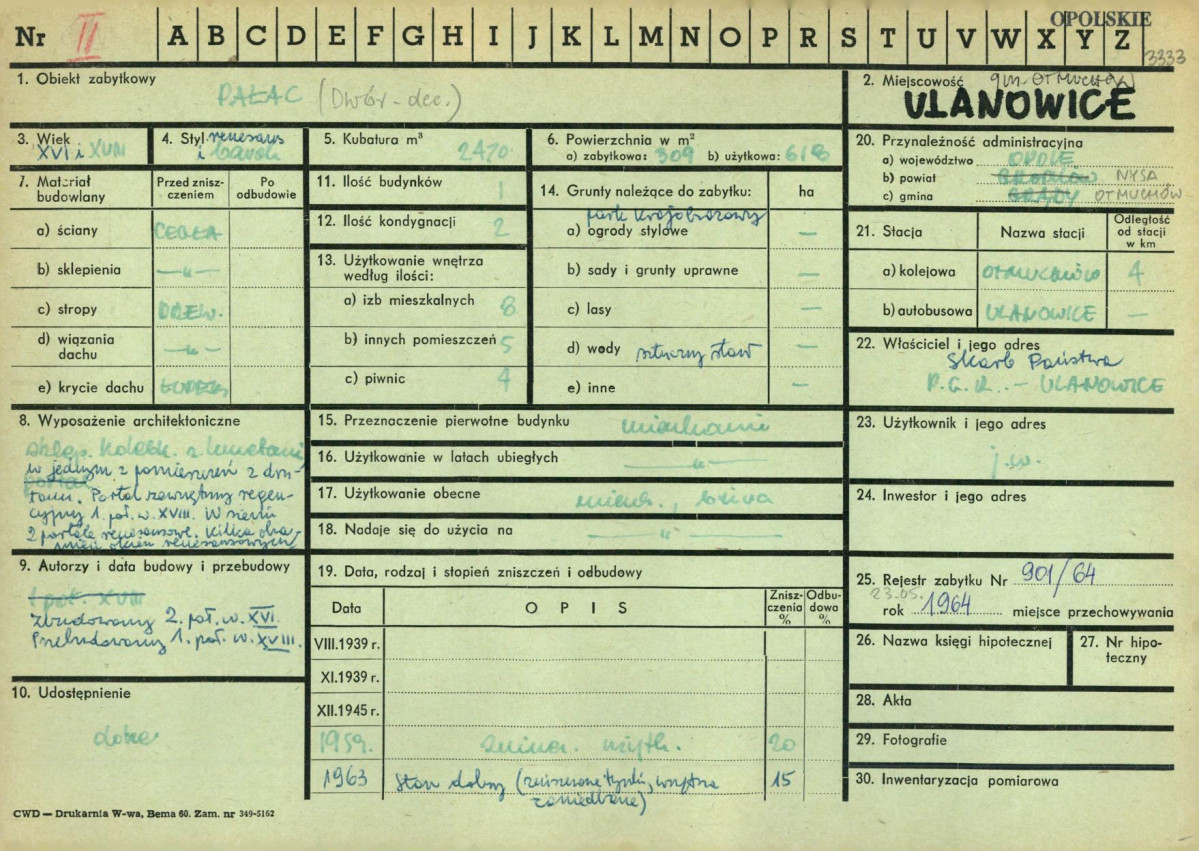 Nr II A B C D E F G H I J K L M N O P R S T U V W X Y Z
OPOLSKIE
3333
1. Obiekt zabytkowy
PAŁAC (Dwór - dec.)
2. Miejscowość gm. OTMUCHÓW
ULANOWICE
3. Wiek
XVI i XVIII
4. Styl renesans
i barok
5. Kubatura m³
2470
6. Powierzchnia w m²
a) zabytkowa: 309 b) użytkowa: 618
20. Przynależność administracyjna
a) województwo OPOLE
b) powiat GRODKÓW NYSA
c) gmina GRĄDY OTMUCHÓW
7. Materiał budowlany
Przed zniszczeniem
Po odbudowie
a) ściany CEGŁA
b) sklepienia —"—
c) stropy DRZEW.
d) wiązania dachu —"—
e) krycie dachu
11. Ilość budynków 1
12. Ilość kondygnacji 2
13. Użytkowanie wnętrza
według ilości:
a) izb mieszkalnych 8
b) innych pomieszczeń 5
c) piwnic 4
14. Grunty należące do zabytku: ha
park krajobrazowy
a) ogrody stylowe —
b) sady i grunty uprawne —
c) lasy —
d) wody sztuczny staw —
e) inne —
21. Stacja
Nazwa stacji
Odległość
od stacji
w km
a) kolejowa OTMUCHÓW 4
b) autobusowa ULANOWICE —
22. Właściciel i jego adres
Skarb Państwa
P.G.R. — ULANOWICE
8. Wyposażenie architektoniczne
sklep. kolebk. z lunetami
w jednym z pomieszczeń z
portal
Portal zewnętrzny regen-
cyjny 1. poł. w. XVIII. W sieni
2 portale renesansowe. Kilka obra-
mień okien renesansowych
15. Przeznaczenie pierwotne budynku mieszkanie
16. Użytkowanie w latach ubiegłych —"—
17. Użytkowanie obecne mieszk., biura
18. Nadaje się do użycia na —"—
23. Użytkownik i jego adres
j.w.
24. Inwestor i jego adres
9. Autorzy i data budowy i przebudowy
1 poł. XVIII
Zbudowany 2. poł. w. XVI.
Przebudowany 1. poł. w. XVIII.
10. Udostępnienie
dobre
19. Data, rodzaj i stopień zniszczeń i odbudowy
Data
OPIS
Zniszczenia %
Odbudowa %
VIII.1939 r.
XI.1939 r.
XII.1945 r.
1959. 20
1963 Stan dobry (zniszczone tynki, wnętrza 15
zaniedbane)
25. Rejestr zabytku Nr 901/64
23.05.
rok 1964 miejsce przechowywania
26. Nazwa księgi hipotecznej
27. Nr hipo-
teczny
28. Akta
29. Fotografie
30. Inwentaryzacja pomiarowa
CWD — Drukarnia W-wa, Bema 60. Zam. nr 349-5162